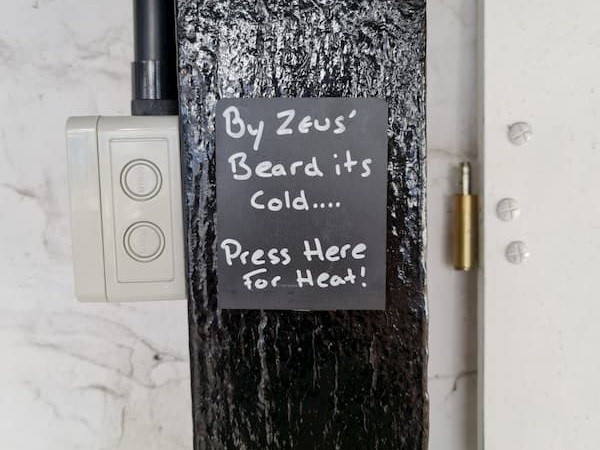 By Zeus'
Beard its
Cold....
Press Here
For Heat!